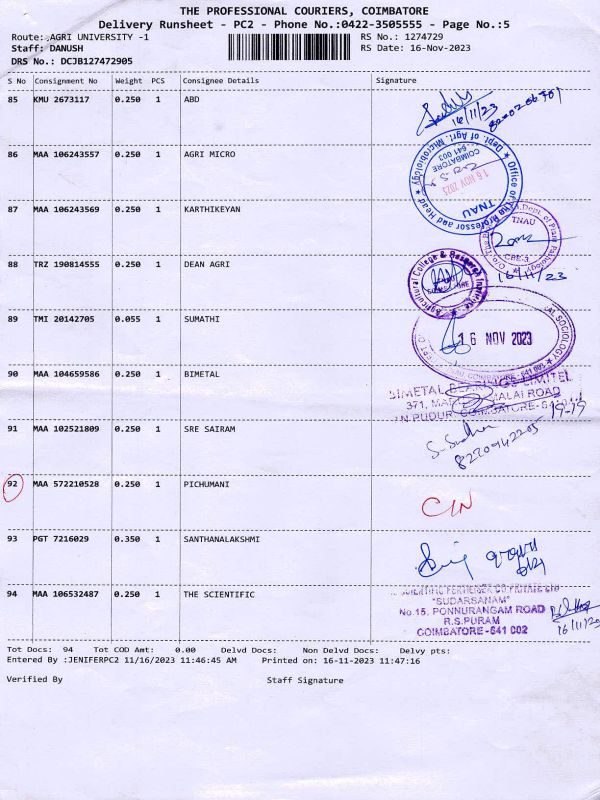 THE PROFESSIONAL COURIERS, COIMBATORE
Delivery Runsheet - PC2 - Phone No.:0422-3505555 - Page No.:5
Route: AGRI UNIVERSITY -1 RS No.: 1274729
Staff: DANUSH RS Date: 16-Nov-2023
DRS No.: DCJB127472905
S No Consignment No Weight PCS Consignee Details Signature
85 KMU 2673117 0.250 1 ABD
16/11/23
86 MAA 106243557 0.250 1 AGRI MICRO
Office of the Professor and Head ★ Dept. of Agri. Microbiology ★
COIMBATORE
641 003
16 NOV 2023
TNAU
87 MAA 106243569 0.250 1 KARTHIKEYAN
TNAU
CBE-3
16/11/23
88 TRZ 190814555 0.250 1 DEAN AGRI
Agricultural College & Research Institute
89 TMI 20142705 0.055 1 SUMATHI
16 NOV 2023
90 MAA 104659586 0.250 1 BIMETAL
BIMETAL BEARINGS LIMITED
371, ROAD
COIMBATORE-
91 MAA 102521809 0.250 1 SRE SAIRAM
92 MAA 572210528 0.250 1 PICHUMANI
93 PGT 7216029 0.350 1 SANTHANALAKSHMI
94 MAA 106532487 0.250 1 THE SCIENTIFIC
SCIENTIFIC FERTILISER CO PRIVATE LTD
"SUDARSANAM"
No.15, PONNURANGAM ROAD
R.S.PURAM
COIMBATORE -641 002
Tot Docs: 94 Tot COD Amt: 0.00 Delvd Docs: Non Delvd Docs: Delvy pts:
Entered By :JENIFERPC2 11/16/2023 11:46:45 AM Printed on: 16-11-2023 11:47:16
Verified By Staff Signature